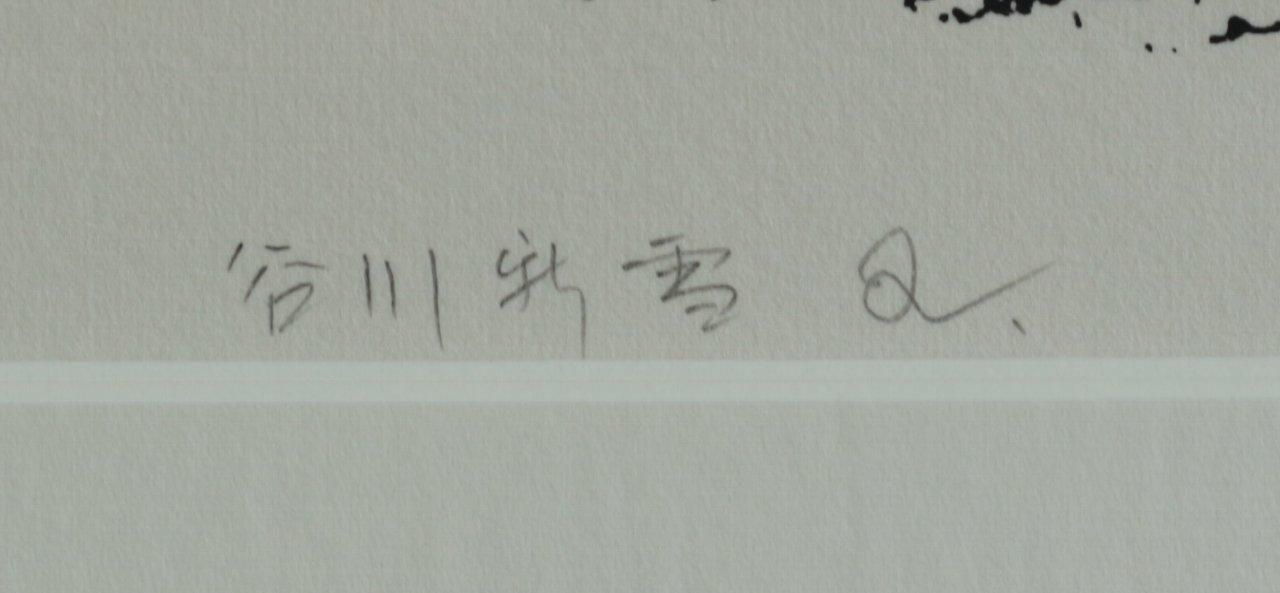 谷川新雪 Q.